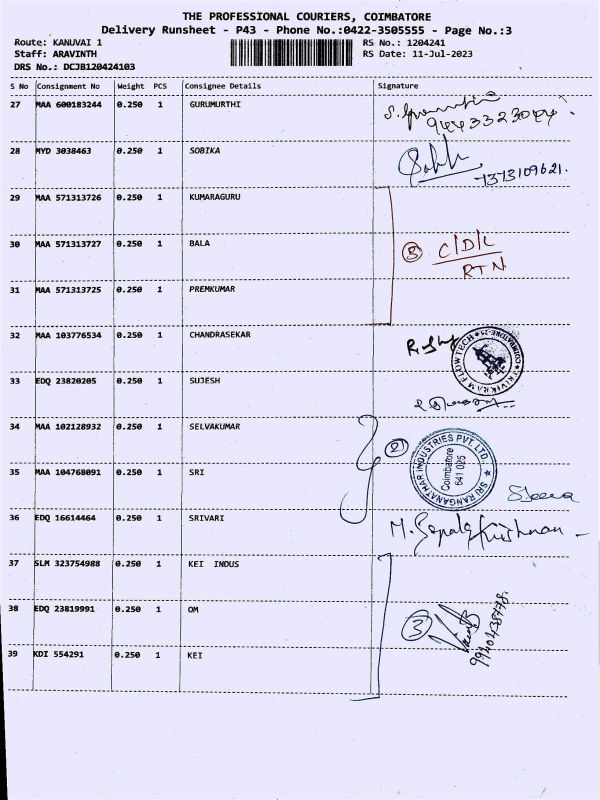 THE PROFESSIONAL COURIERS, COIMBATORE
Delivery Runsheet - P43 - Phone No.:0422-3505555 - Page No.:3
Route: KANUVAI 1 RS No.: 1204241
Staff: ARAVINTH RS Date: 11-Jul-2023
DRS No.: DCJB120424103
S No Consignment No Weight PCS Consignee Details Signature
27 MAA 600183244 0.250 1 GURUMURTHI
9443323044
28 MYD 3038463 0.250 1 SOBIKA
7373109621.
29 MAA 571313726 0.250 1 KUMARAGURU
30 MAA 571313727 0.250 1 BALA
3 C/D/L
RTN
31 MAA 571313725 0.250 1 PREMKUMAR
32 MAA 103776534 0.250 1 CHANDRASEKAR
TRIVIKRAM FLOWTECH COIMBATORE-25
33 EDQ 23820205 0.250 1 SUJESH
34 MAA 102128932 0.250 1 SELVAKUMAR
2
SRI RANGANATHAR INDUSTRIES PVT. LTD.
Coimbatore
641 025
35 MAA 104768091 0.250 1 SRI
36 EDQ 16614464 0.250 1 SRIVARI
M. Gopalakrishnan
37 SLM 323754988 0.250 1 KEI INDUS
38 EDQ 23819991 0.250 1 OM
3
9940438478.
39 KDI 554291 0.250 1 KEI